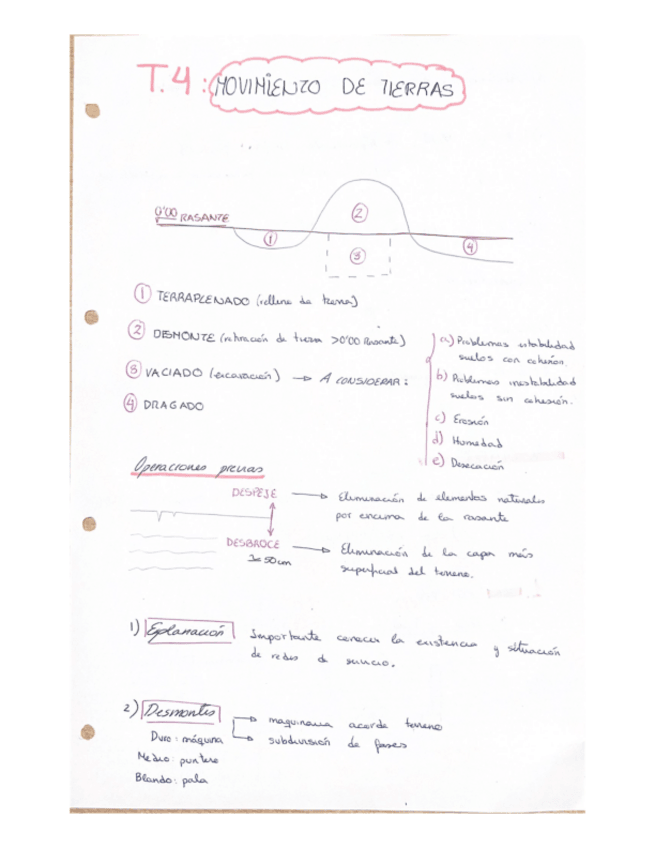 T.4: MOVIMIENTO DE TIERRAS
0'00 RASANTE
1
2
3
4
1 TERRAPLENADO (relleno de tierra)
2 DESMONTE (retiración de tierra >0'00 Rasante)
3 VACIADO (excavación) → A CONSIDERAR:
4 DRAGADO
a) Problemas estabilidad
suelos con cohesión.
b) Problemas inestabilidad
suelos sin cohesión.
c) Erosión
d) Humedad
e) Desecación
Operaciones previas
DESPEJE → Eliminación de elementos naturales
por encima de la rasante
DESBROCE → Eliminación de la capa más
50cm superficial del terreno.
1) Explanación Importante conocer la existencia y situación
de redes de servicio.
2) Desmontes → maquinaria acorde terreno
Duro: máquina → subdivisión de fases
Medio: puntero
Blando: pala